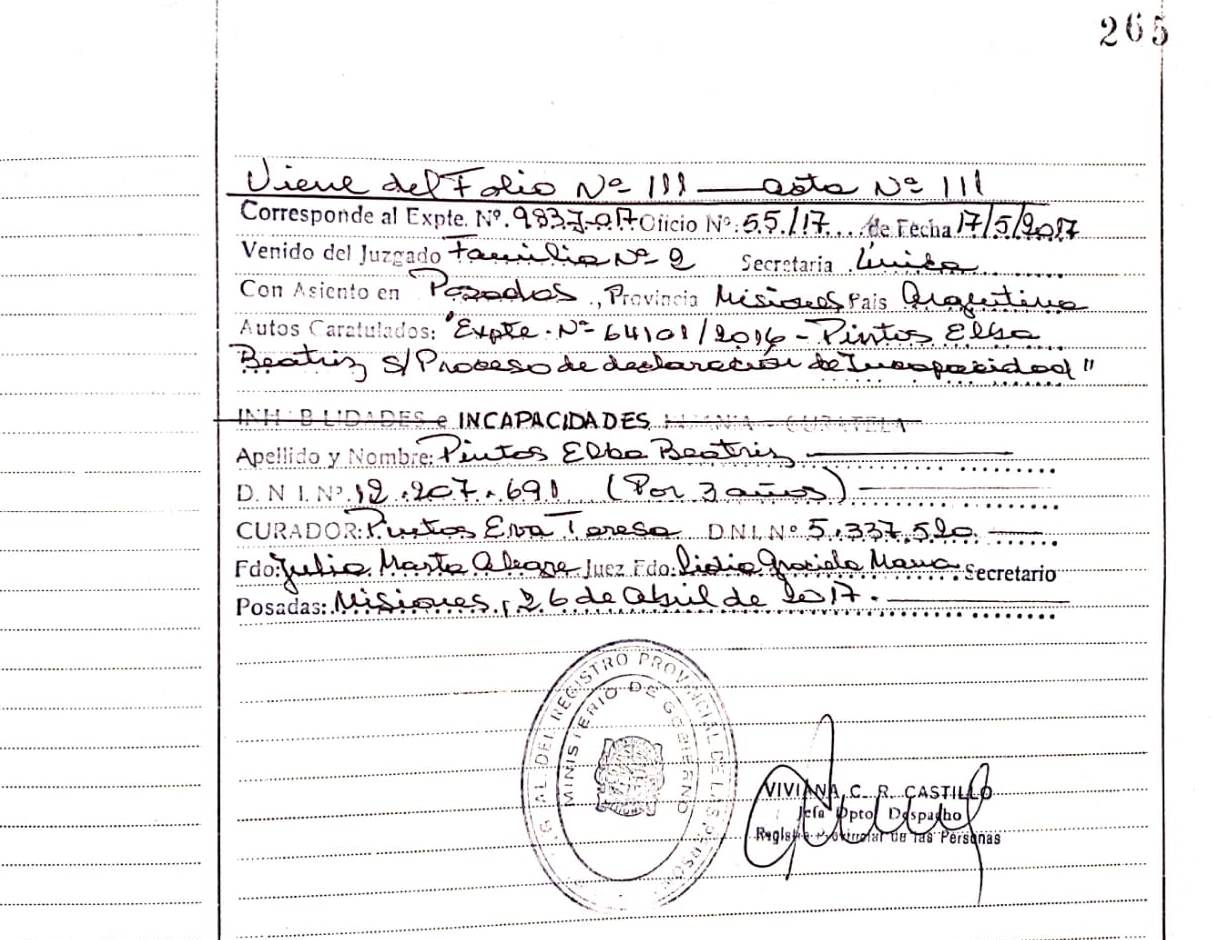 265
Viene del Folio Nº 111 — acta Nº 111
Corresponde al Expte. Nº. 9837-017 Oficio Nº: 55/17... de Fecha 17/5/2017
Venido del Juzgado Familia Nº 2 Secretaria Única
Con Asiento en Posadas, Provincia Misiones Pais Argentina
Autos Caratulados: "Expte. Nº 64101/2016 - Pintos Elba
Beatriz S/ Proceso de declaración de Incapacidad"
INHABILIDADES e INCAPACIDADES INSANIA - CURATELA
Apellido y Nombre: Pintos Elba Beatriz
D. N I. Nº. 12.207.691 (Por 3 años)
CURADOR: Pintos Eva Teresa D.N.I. Nº 5.337.520
Fdo: Julia Marta Alegre Juez Fdo: Lidia Graciela Secretario
Posadas: Misiones, 26 de abril de 2017.
G AL DEL REGISTRO PROVINCIAL DE LAS PERSON
MINISTERIO DE GOBIERNO
VIVIANA C. R. CASTILLO
Jefa Dpto. Despacho
Registro Provincial de las Personas